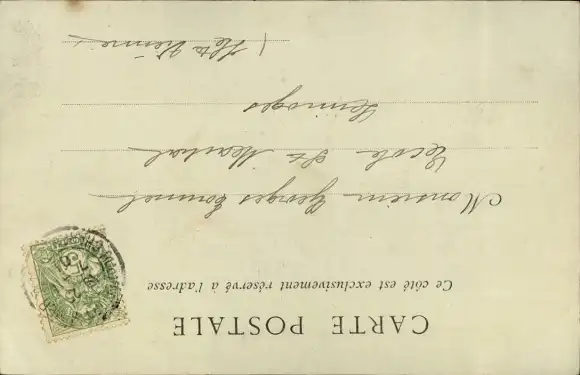 CARTE POSTALE
Ce côté est exclusivement réservé à l'adresse
Monsieur Georges
École St Martial
Limoges
(Hte Vienne)